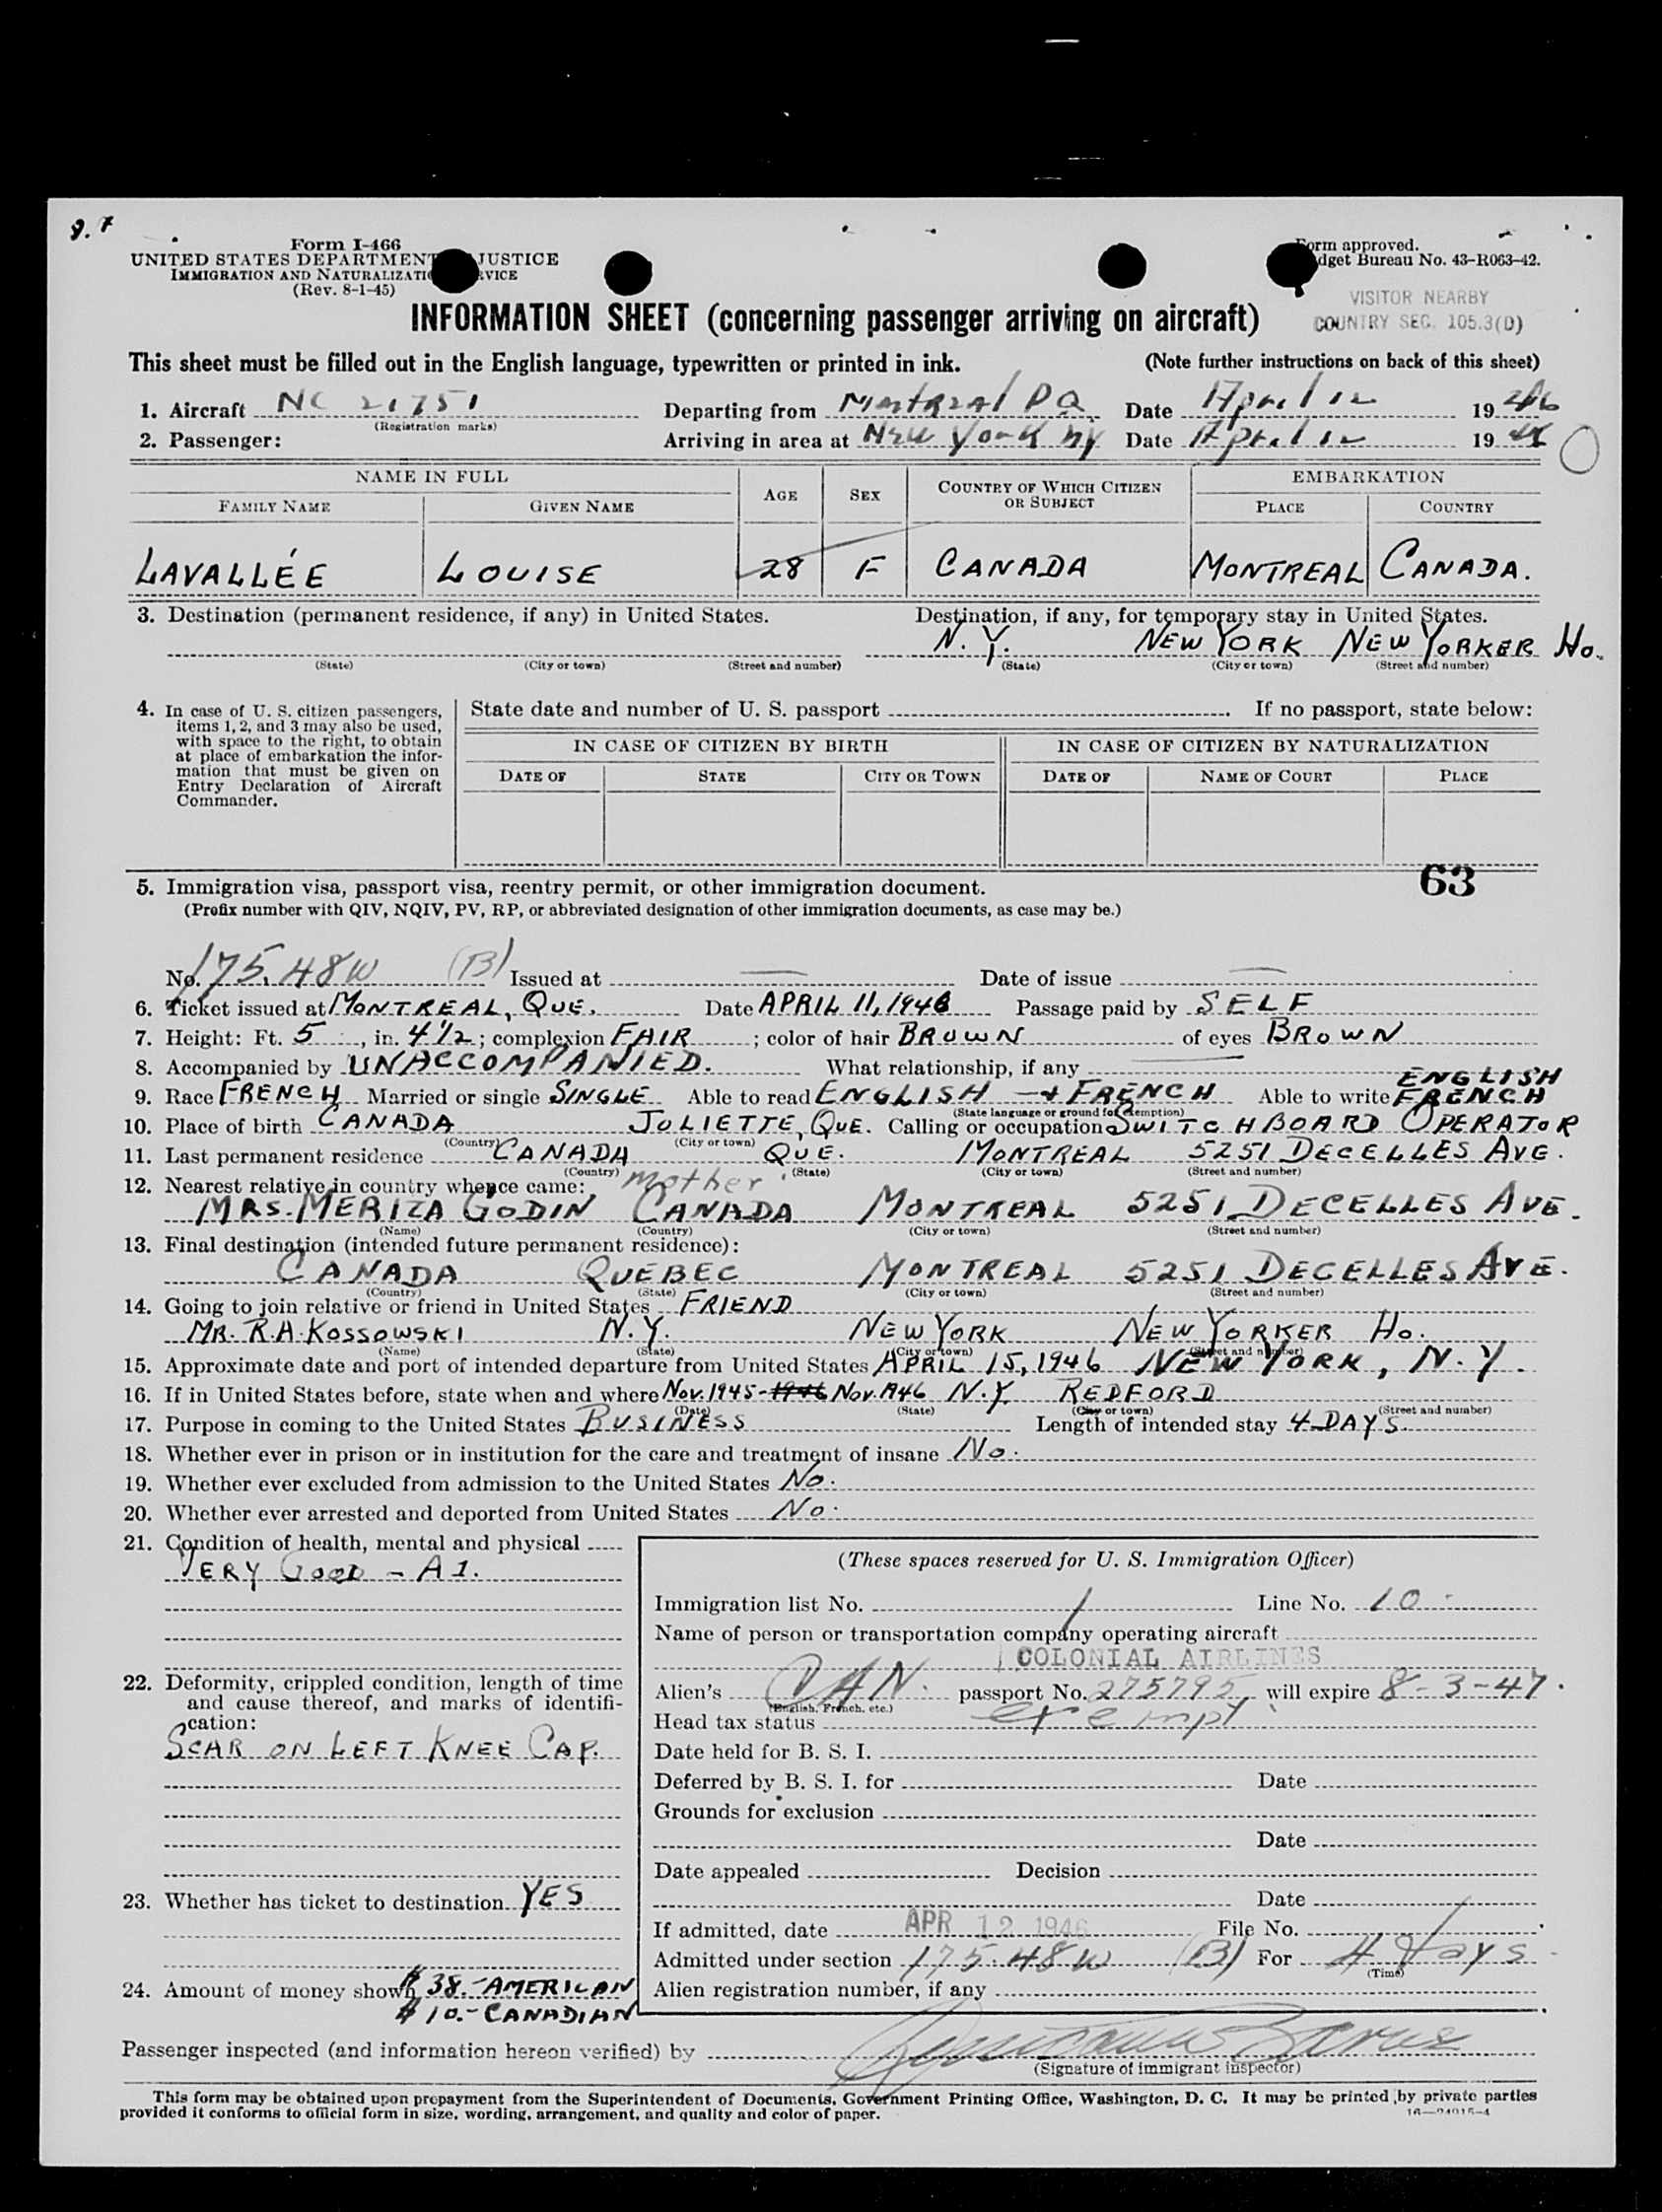 9.7
Form I-466
UNITED STATES DEPARTMENT JUSTICE
IMMIGRATION AND NATURALIZATI VICE
(Rev. 8-1-45)
Form approved.
dget Bureau No. 43-R063-42.
VISITOR NEARBY
COUNTRY SEC. 105.3(D)
INFORMATION SHEET (concerning passenger arriving on aircraft)
This sheet must be filled out in the English language, typewritten or printed in ink. (Note further instructions on back of this sheet)
1. Aircraft NC 21751 Departing from Montreal PQ Date April 12 1946
(Registration marks)
2. Passenger: Arriving in area at New York NY Date April 12 1946
NAME IN FULL AGE SEX COUNTRY OF WHICH CITIZEN OR SUBJECT EMBARKATION
FAMILY NAME GIVEN NAME PLACE COUNTRY
LAVALLÉE LOUISE 28 F CANADA MONTREAL CANADA.
3. Destination (permanent residence, if any) in United States. Destination, if any, for temporary stay in United States.
N.Y. NEW YORK NEW YORKER HO.
(State) (City or town) (Street and number) (State) (City or town) (Street and number)
4. In case of U. S. citizen passengers, items 1, 2, and 3 may also be used, with space to the right, to obtain at place of embarkation the information that must be given on Entry Declaration of Aircraft Commander.
State date and number of U. S. passport If no passport, state below:
IN CASE OF CITIZEN BY BIRTH IN CASE OF CITIZEN BY NATURALIZATION
DATE OF STATE CITY OR TOWN DATE OF NAME OF COURT PLACE
63
5. Immigration visa, passport visa, reentry permit, or other immigration document.
(Prefix number with QIV, NQIV, PV, RP, or abbreviated designation of other immigration documents, as case may be.)
No. 175.48W (B) Issued at — Date of issue —
6. Ticket issued at MONTREAL, QUE. Date APRIL 11, 1946 Passage paid by SELF
7. Height: Ft. 5, in. 4 1/2; complexion FAIR; color of hair BROWN of eyes BROWN
8. Accompanied by UNACCOMPANIED. What relationship, if any —
9. Race FRENCH Married or single SINGLE Able to read ENGLISH + FRENCH Able to write ENGLISH FRENCH
(State language or ground for exemption)
10. Place of birth CANADA JOLIETTE, QUE. Calling or occupation SWITCHBOARD OPERATOR
(Country) (City or town)
11. Last permanent residence CANADA QUE. MONTREAL 5251 DECELLES AVE.
(Country) (State) (City or town) (Street and number)
12. Nearest relative in country whence came: mother
MRS. MERIZA GODIN CANADA MONTREAL 5251 DECELLES AVE.
(Name) (Country) (City or town) (Street and number)
13. Final destination (intended future permanent residence):
CANADA QUEBEC MONTREAL 5251 DECELLES AVE.
(Country) (State) (City or town) (Street and number)
14. Going to join relative or friend in United States FRIEND
MR. R.H. KOSSOWSKI N.Y. NEW YORK NEW YORKER HO.
(Name) (State) (City or town) (Street and number)
15. Approximate date and port of intended departure from United States APRIL 15, 1946 NEW YORK, N.Y.
16. If in United States before, state when and where Nov. 1945 - 1946 Nov. 1946 N.Y. REDFORD
(Date) (State) (City or town) (Street and number)
17. Purpose in coming to the United States BUSINESS Length of intended stay 4 DAYS.
18. Whether ever in prison or in institution for the care and treatment of insane No.
19. Whether ever excluded from admission to the United States No.
20. Whether ever arrested and deported from United States No.
21. Condition of health, mental and physical
VERY GOOD - A1.
22. Deformity, crippled condition, length of time and cause thereof, and marks of identification:
SCAR ON LEFT KNEE CAP.
23. Whether has ticket to destination YES
24. Amount of money shown $38.- AMERICAN
$10.- CANADIAN
(These spaces reserved for U. S. Immigration Officer)
Immigration list No. 1 Line No. 10
Name of person or transportation company operating aircraft
COLONIAL AIRLINES
Alien's CAN. passport No. 275795 will expire 8-3-47.
(English, French, etc.)
Head tax status exempt
Date held for B. S. I.
Deferred by B. S. I. for Date
Grounds for exclusion
Date
Date appealed Decision
Date
If admitted, date APR 12 1946 File No.
Admitted under section 175.48W (B) For 4 days
(Time)
Alien registration number, if any
Passenger inspected (and information hereon verified) by
(Signature of immigrant inspector)
This form may be obtained upon prepayment from the Superintendent of Documents, Government Printing Office, Washington, D. C. It may be printed by private parties
provided it conforms to official form in size, wording, arrangement, and quality and color of paper.